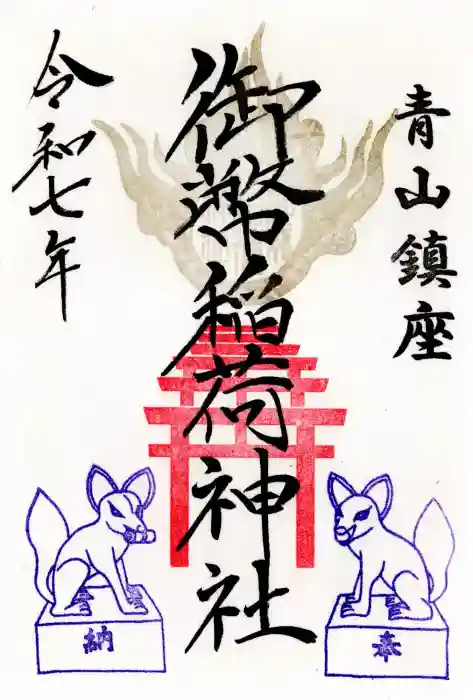 青山鎮座
御幣稲荷神社
令和七年
奉
納